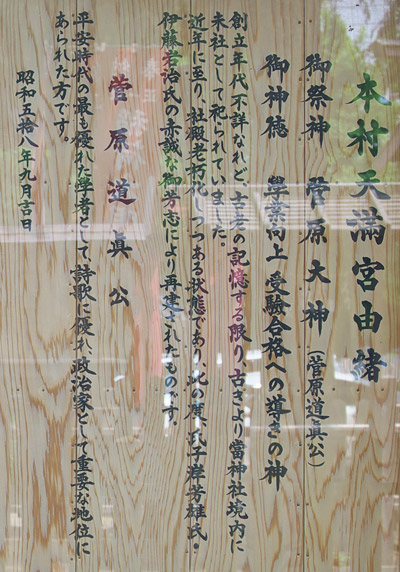 本村天満宮由緒
御祭神 菅原大神(菅原道眞公)
御神徳 學業向上 受験合格への導きの神
創立年代不詳なれど、古老の記憶する限り、古きより當神社境内に
末社として祀られていました。
近年に至り、社殿老朽化しつつある状態であり、此の度、氏子岸芳雄氏・
伊藤君治氏の赤誠な御芳志により再建されたものです。
菅原道眞公
平安時代の最も優れた学者として、詩歌に優れ、政治家として重要な地位に
あられた方です。
昭和五拾八年九月吉日